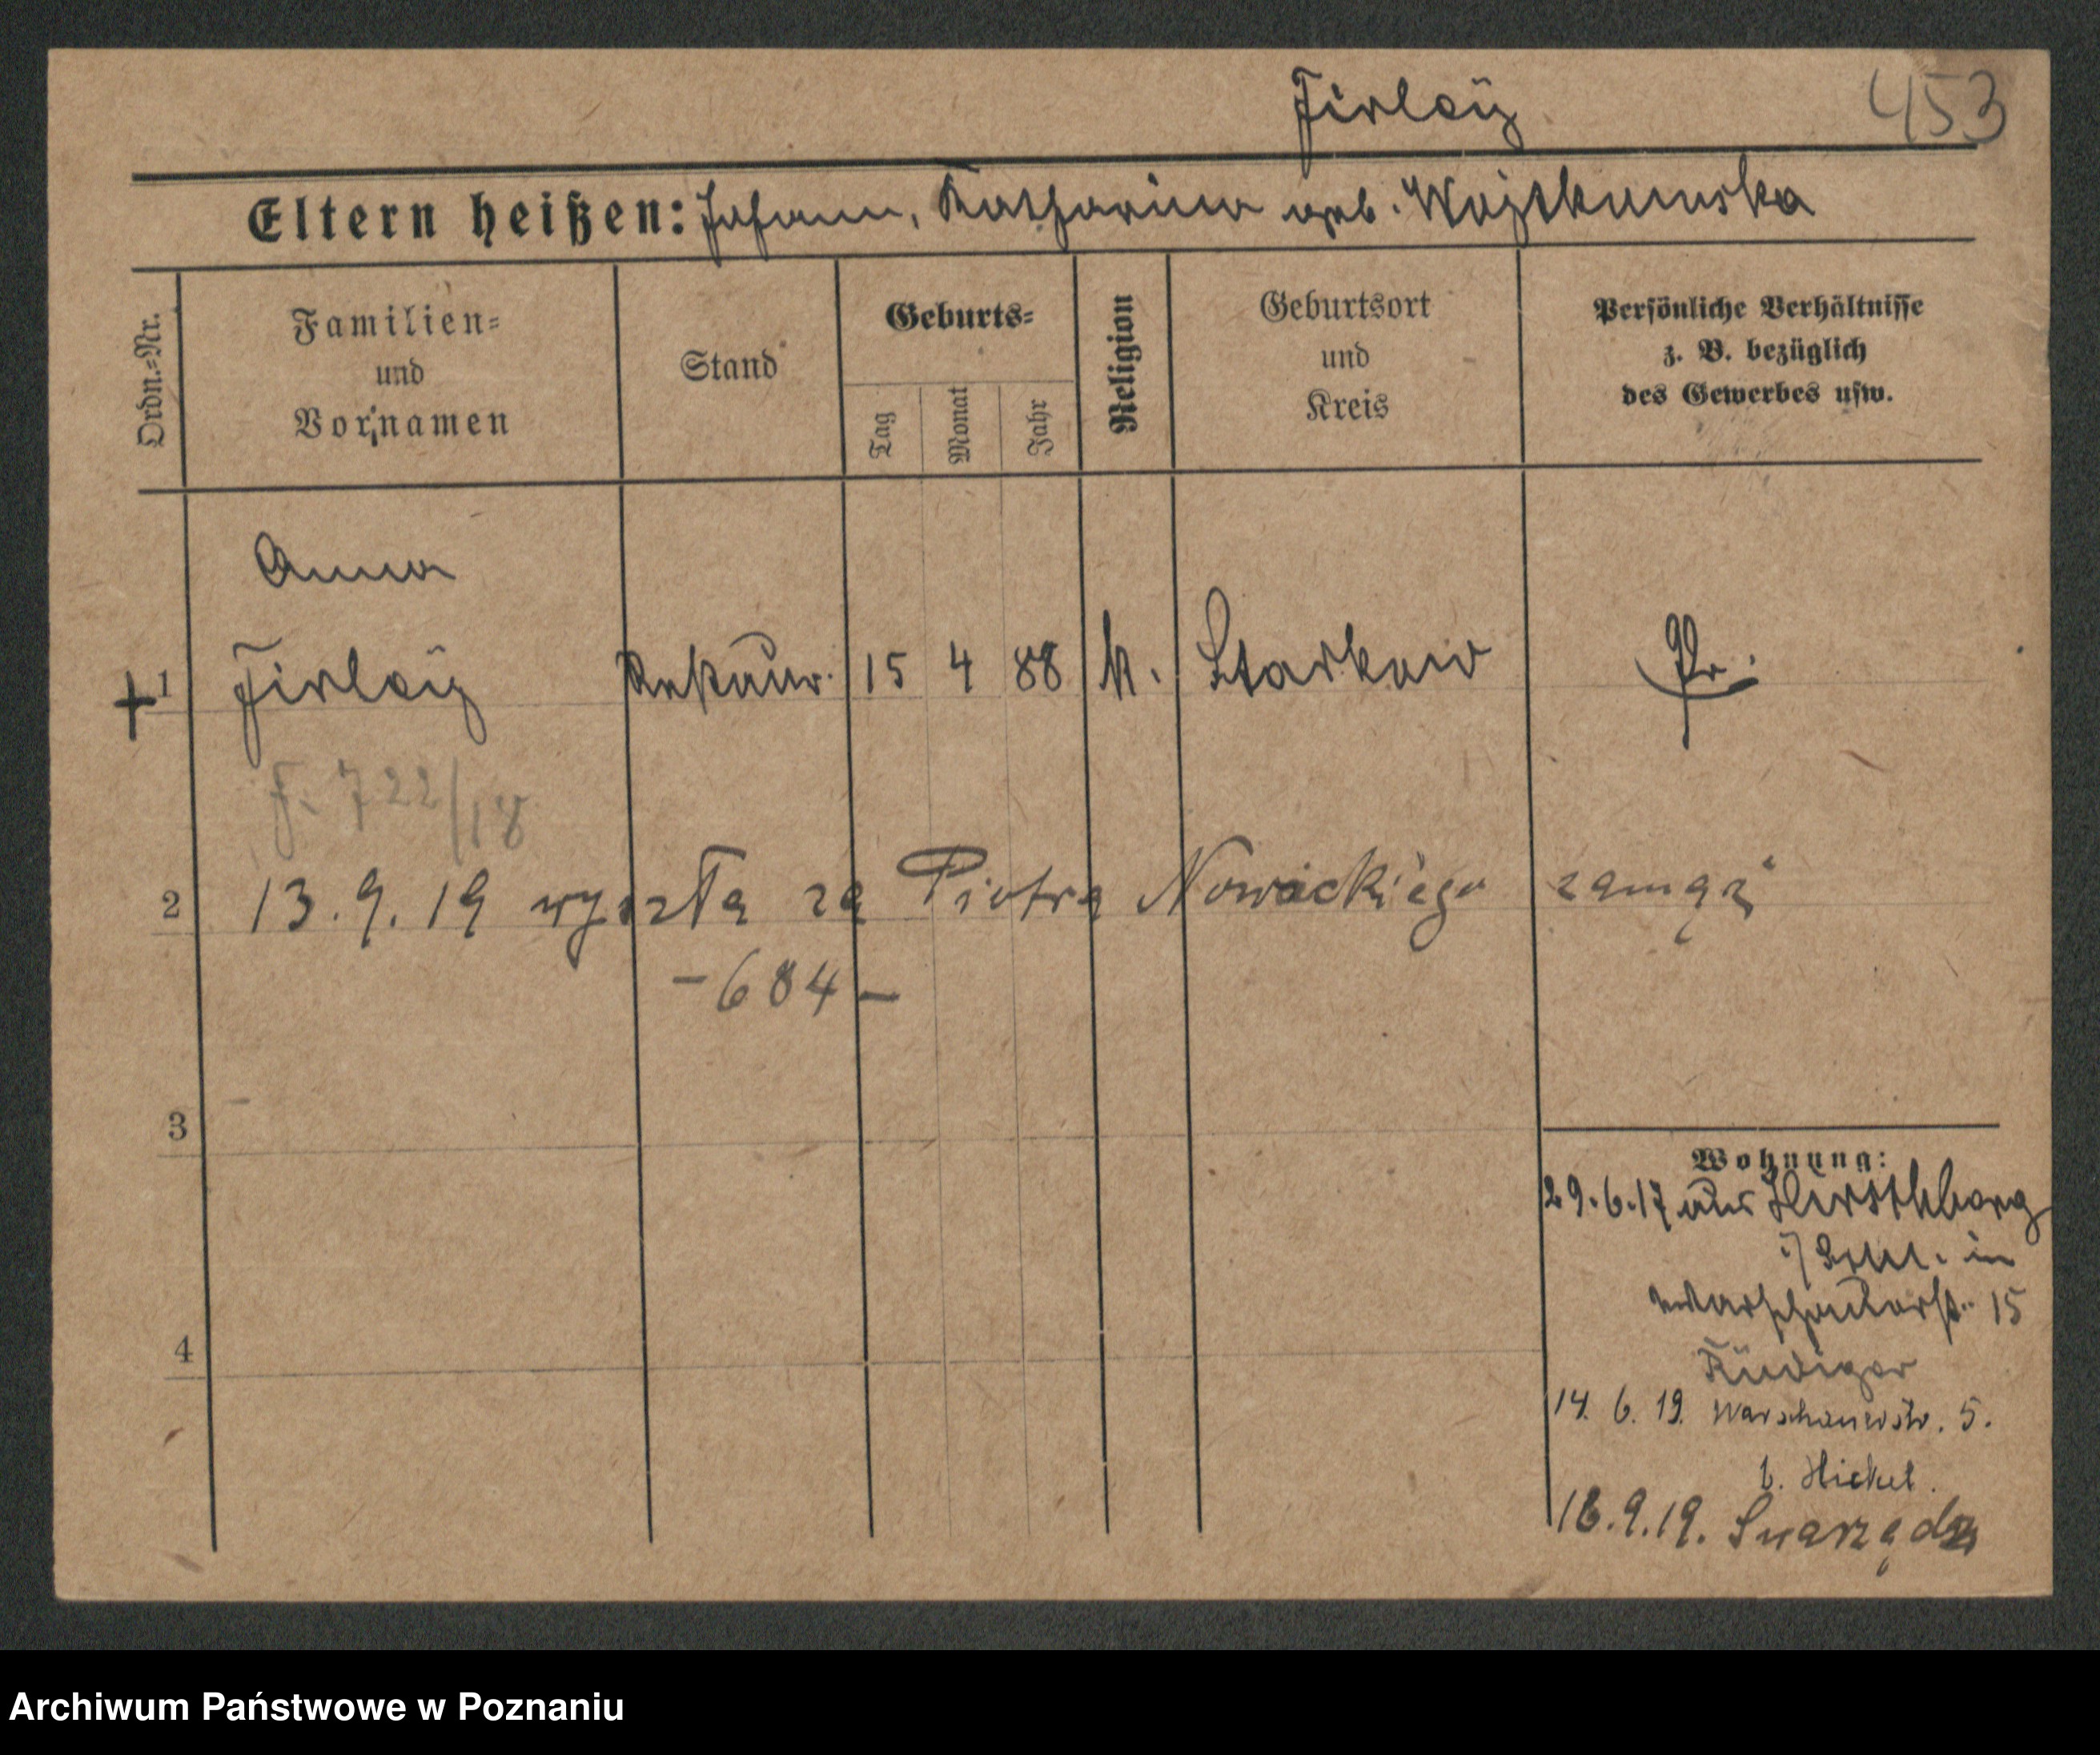 Firleÿ 453
Eltern heißen: Johann, Katharina geb. Wojtkunska
Ordn.=Nr.
Familien=
und
Vornamen
Stand
Geburts=
Tag
Monat
Jahr
Religion
Geburtsort
und
Kreis
Persönliche Verhältnisse
z. B. bezüglich
des Gewerbes usw.
Anna
1 Firleÿ 15 4 88 k. Starkow Pr.
F. 722/18
2 13.9.19 wyszła za Piotra Nowackiego zamąż
- 684 -
3
Wohnung:
29.6.17 aus Hirschberg
in
Warschauerst. 15
4
Rüdiger
14. 6. 19. Warschauerstr. 5.
b. Hickel.
18.9.19. Swarzędz
Archiwum Państwowe w Poznaniu